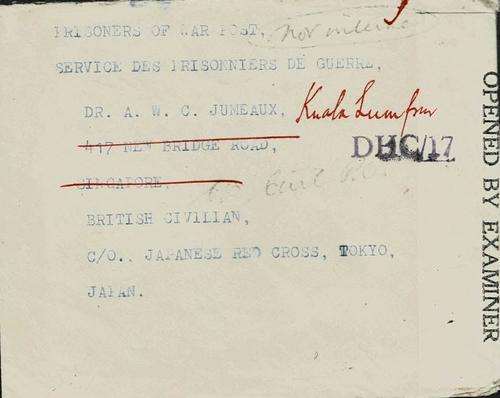 PRISONERS OF WAR POST,
Not interned
SERVICE DES PRISONNIERS DE GUERRE,
DR. A. W. C. JUMEAUX,
Kuala Lumpur
417 NEW BRIDGE ROAD,
DHC/17
SINGAPORE,
Civil
BRITISH CIVILIAN,
C/O., JAPANESE RED CROSS, TOKYO,
JAPAN.
OPENED BY EXAMINER